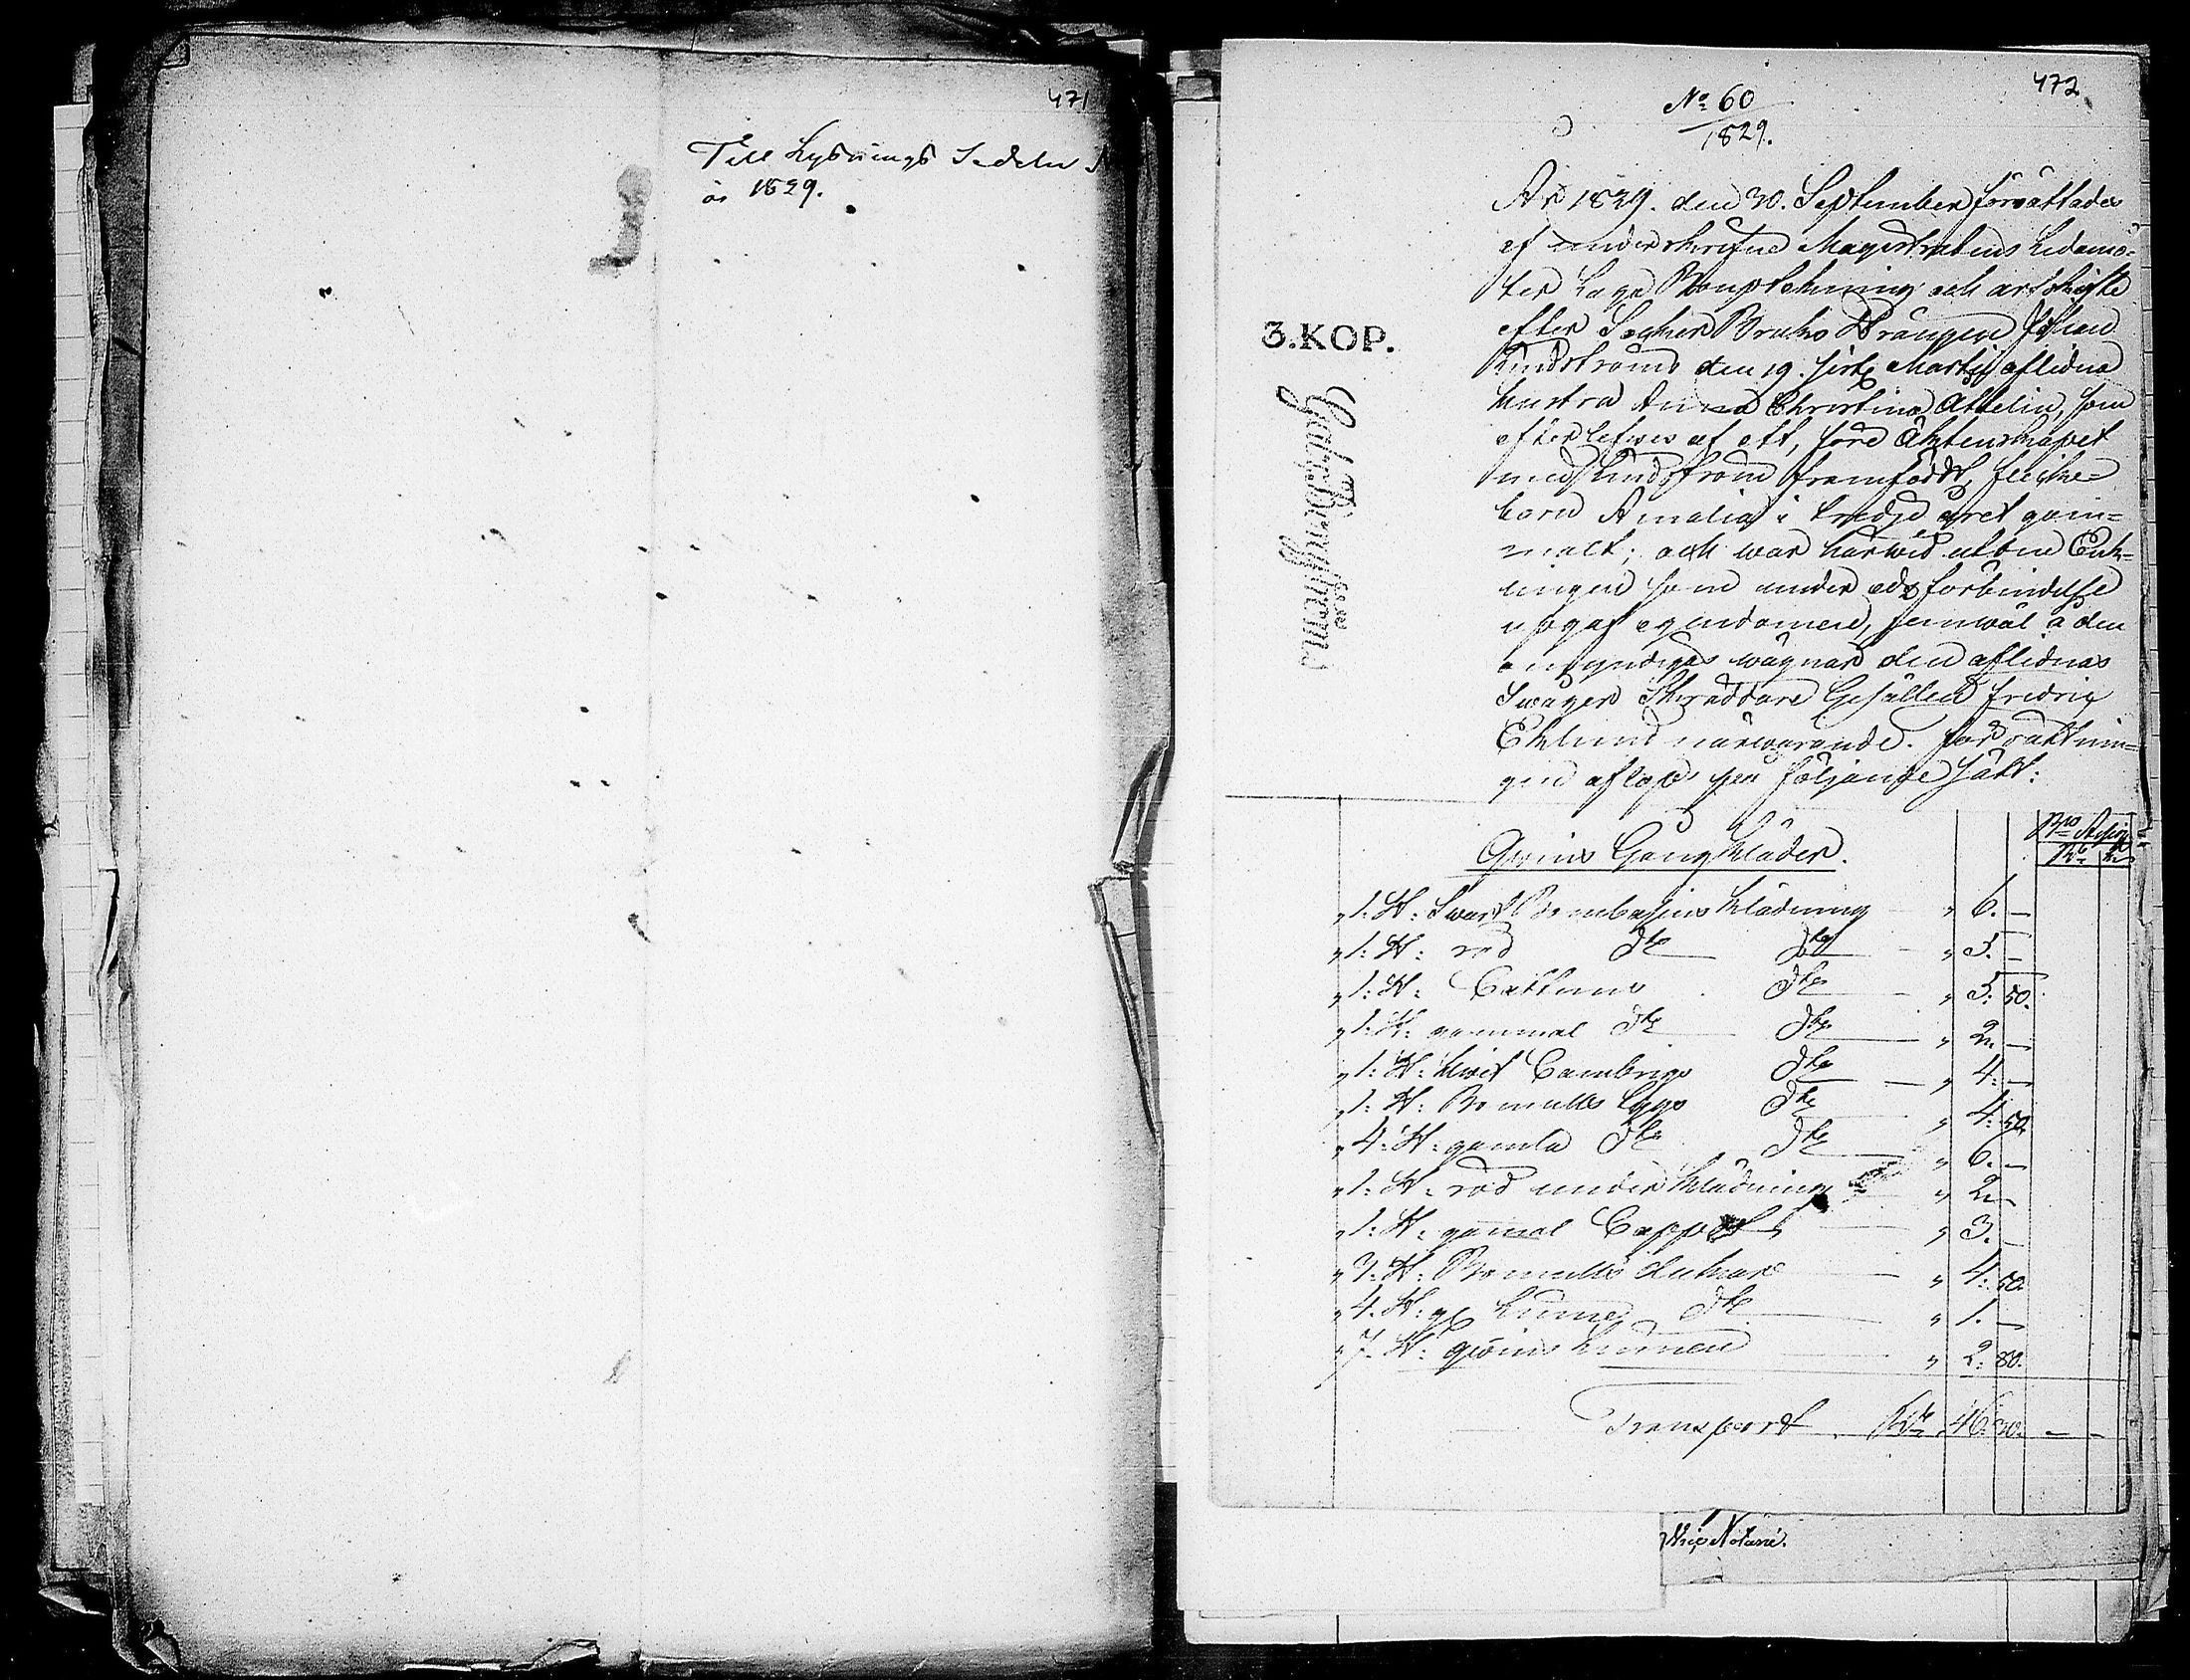 471
Till Lysnings Sedeln N
år 1829.
472
No 60
1829.
År 1829. den 30. September förrättades
af underskrifne Magistratens Ledamö-
ter Laga Bouptekning och arfskifte
efter Socker Bruks Drängen Johan
Lindströms den 19. sistl. Martij aflidna
hustru Anna Christina Ahlelin, som
efterlefves af ett, före Äktenskapet
med Lindström framfödt, flicke-
barn Amalia i tredje året gam-
malt; och war härwid utom Enk-
lingen som under eds förbindelse
uppgaf egendomen, jemwäl å den
omyndigas wägnar den aflidnas
Swåger Skräddare Gesällen Fredric
Eklund närwarande. Förrättnin-
gen aflopp på följande sätt:
3.KOP.
Bco Assign.
Rb. k
Qwins Gångkläder.
„ 1: St: Swart Bombasins klädning „ 6. —
„ 1: St: röd Dto Dto — „ 5. —
„ 1: St: Cattuns Dto — „ 5: 50.
„ 1: St: gammal Dto Dto — „ 2. —
„ 1: St: hwit Cambrigs Dto — „ 4: —
„ 1: St: Bomulls tygs Dto „ 4: 50.
„ 4: St: gamla Dto Dto — „ 6. —
„ 1: St: röd under klädning „ 2. —
„ 1: St: gamal Cappot — „ 3. —
„ 9: St: Bomulls dukar — „ 4: 50.
„ 4. St: gl. Linne Dto — „ 1. —
„ 7. St: qwins Linnen — „ 2: 80.
Transport . Rbl 46: 30. — —
Vice Notarie.